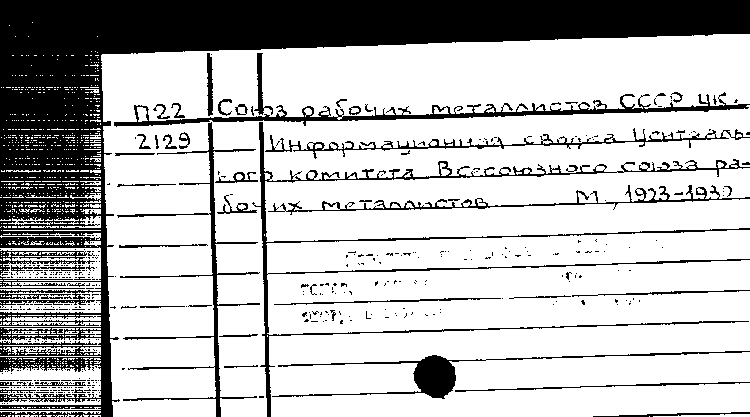 П22 Союз рабочих металлистов СССР. ЦК.
2129 Информационная сводка Централь-
ного комитета Всесоюзного союза ра-
бочих металлистов М., 1923-1932